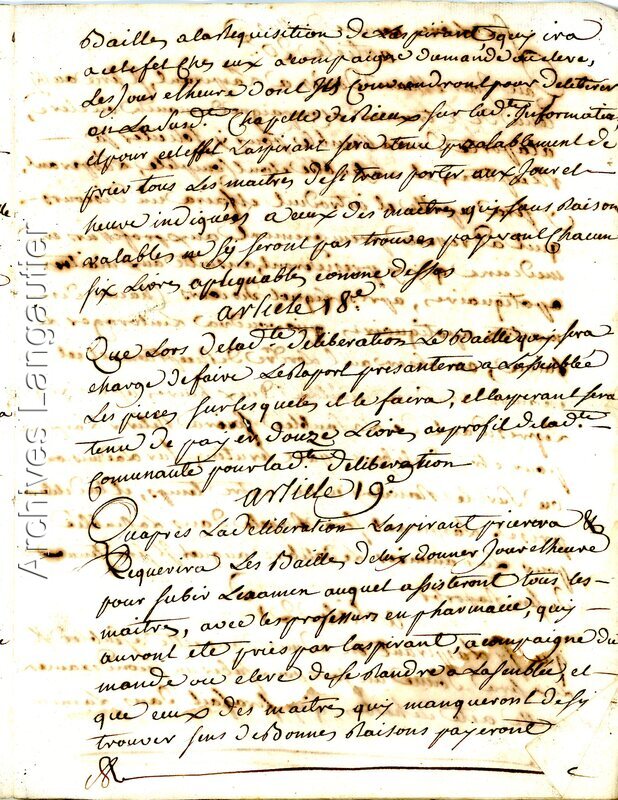 Bailles a la Requisition de Laspirant, quy ira
a cet efet Ches eux acompaigne du mande ou eleve,
Les Jour et heure dont Ils Conviendront pour deliberer
en La susd.e Chapelle des Rieux sur lad.te Information
et pour cet effet Laspirant sera tenu prealablement de
prier tous Les maitres de se transporter aux Jour et
heure indiquées a eux des maitres quy sans Raison
valables ne sy seront pas trouves payeront Chacun
six Livres apliquables comme dessus
article 18.e
Que Lors de lad.te deliberation Le Baille quy sera
charge de faire Le Raport presantera a Lassemblée
Les pieces sur lesqueles il le faira, et laspirant sera
tenu de payer douze Livres au profil de lad.te
Communaute pour lad.te deliberation
article 19.e
Quapres La deliberation Laspirant prierera &
Requerira Les Bailles de lux donner Jour et heure
pour subir Lexamen auquel assisteront tous les
maitres, avec les professeurs en pharmacie, quy
auront ete pries par laspirant, acompaigne du
mande ou eleve de se Randre a Lassemblée, et
que ceux des maitres quy manqueront de sy
trouver sens de Bonnes Raisons payeront
Archives Langautier